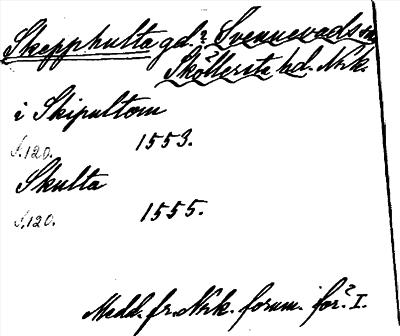 Skepphulta gd.? Svennevads sn
Sköllersta hd. Nrk.
i Skipultom
s.120. 1553.
Skulta
s.120. 1555.
Medd. fr. Nrk. fornm. för. I.